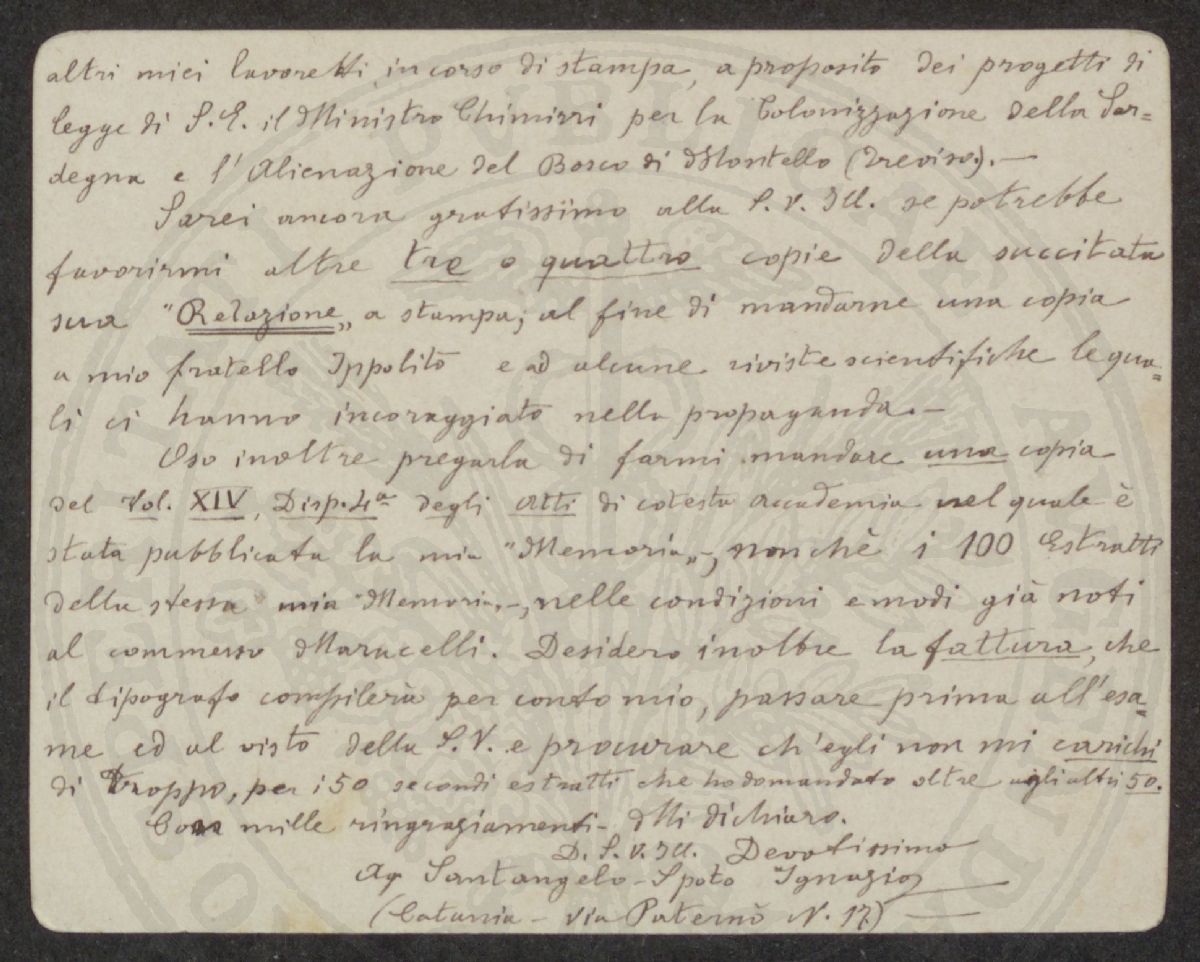 altri miei lavoretti in corso di stampa, a proposito dei progetti di
legge di S. E. il Ministro Chimirri per la Colonizzazione della Sar=
degna e l'Alienazione del Bosco di Montello (Treviso).—
Sarei ancora gratissimo alla S. V. Ill. se potrebbe
favorirmi altre tre o quattro copie della succitata
sua "Relazione„ a stampa; al fine di mandarne una copia
a mio fratello Ippolito e ad alcune riviste scientifiche le qua=
li ci hanno incoraggiato nella propaganda.—
Oso inoltre pregarla di farmi mandare una copia
del Vol. XIV, Disp. 4ª degli Atti di cotesta Accademia nel quale è
stata pubblicata la mia "Memoria„—, nonchè i 100 Estratti
della stessa mia Memoria.—, nelle condizioni e modi già noti
al commesso Marucelli. Desidero inoltre la fattura, che
il tipografo compilerà per conto mio, passare prima all'esa=
me ed al visto della S. V. e procurare ch'egli non mi carichi
di troppo, per i 50 secondi estratti che ho domandato oltre agli altri 50.
Con mille ringraziamenti— Mi dichiaro.
D. S. V. Ill. Devotissimo
Santangelo-Spoto Ignazio
(Catania — via Paternò N. 17.) —